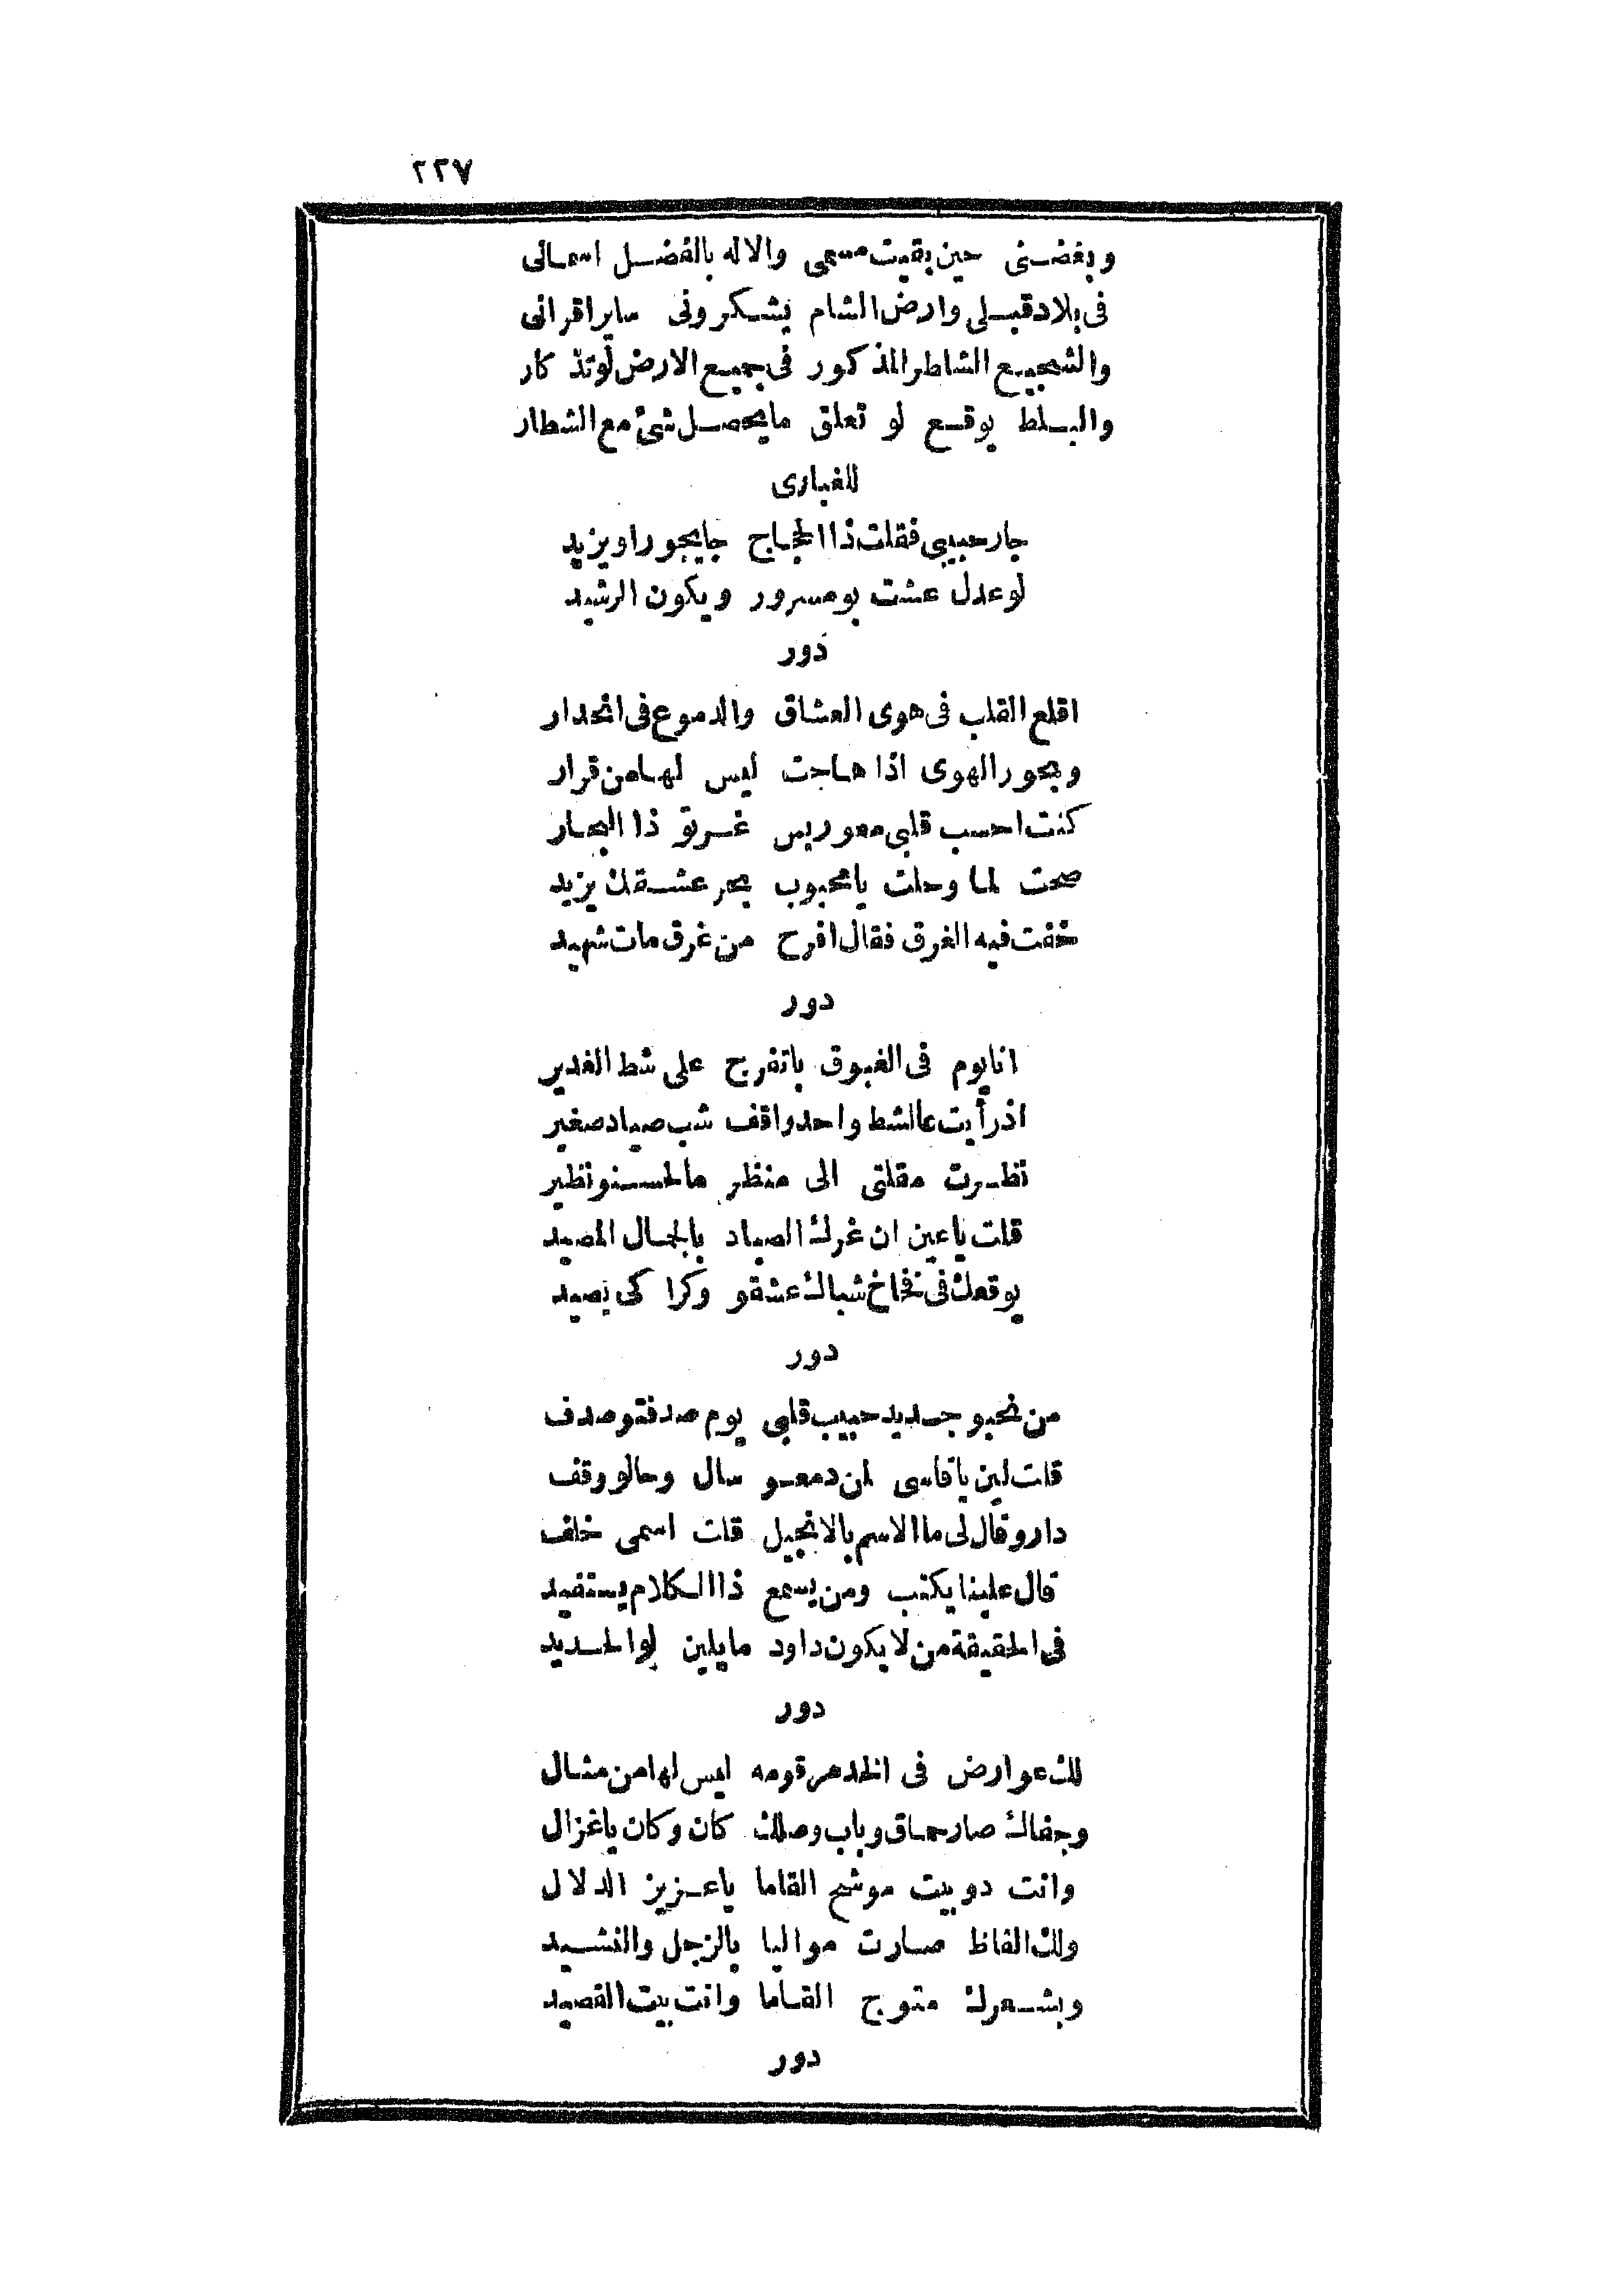 ٢٢٧
وبغضنى حين بقيت مسمى والاله بالفضل اسمانى
فى بلاد قبلى وارض الشام يشكرونى ساير اقرانى
والشجيع الشاطر المذكور فى جميع الارض لو تذكار
والبلط يوقع لو تعلق ما يحصل شئ مع الشطار
للغبارى
جار حبيبى فقلت ذا الحجاج جا يجور او يزيد
لو عدل عشت بو مسرور ويكون الرشيد
دور
اقلع القلب فى هوى العشاق والدموع فى انحدار
وبحور الهوى اذا هاجت ليس لها من قرار
كنت احسب قلبى معو ريس غرقو ذا البحار
صحت لما وحلت يا محبوب بحر عشقك يزيد
خفت فيه الغرق فقال افرح من غرق مات شهيد
دور
انا يوم فى الغبوق باتفرج على شط الغدير
اذ رأيت عالشط واحد واقف شب صياد صغير
نظرت مقلتى الى منظر ما لحسنو نظير
قلت يا عين ان غرك الصياد بالجمال المصيد
يوقعك فى نخاخ شباك عشقو وكرا كى نصيد
دور
من نحبو جديد حبيب قلبى يوم صدفتو صدف
قلت لين يا قاسى لمن دمعو سال وحالو وقف
دار وقال لى ما الاسم بالانجيل قلت اسمى خلف
قال علينا يكتب ومن يسمع ذا الكلام يستفيد
فى الحقيقة من لا يكون داود ما يلين لو الحديد
دور
لك عوارض فى الخد مرقومه ليس لها من مثال
وجفاك صار حماق وباب وصلك كان وكان يا غزال
وانت دوبيت موشح القاما يا عزيز الدلال
ولك الفاظ صارت مواليا بالزجل والنشيد
وبشعرك متوج القاما وانت بيت القصيد
دور